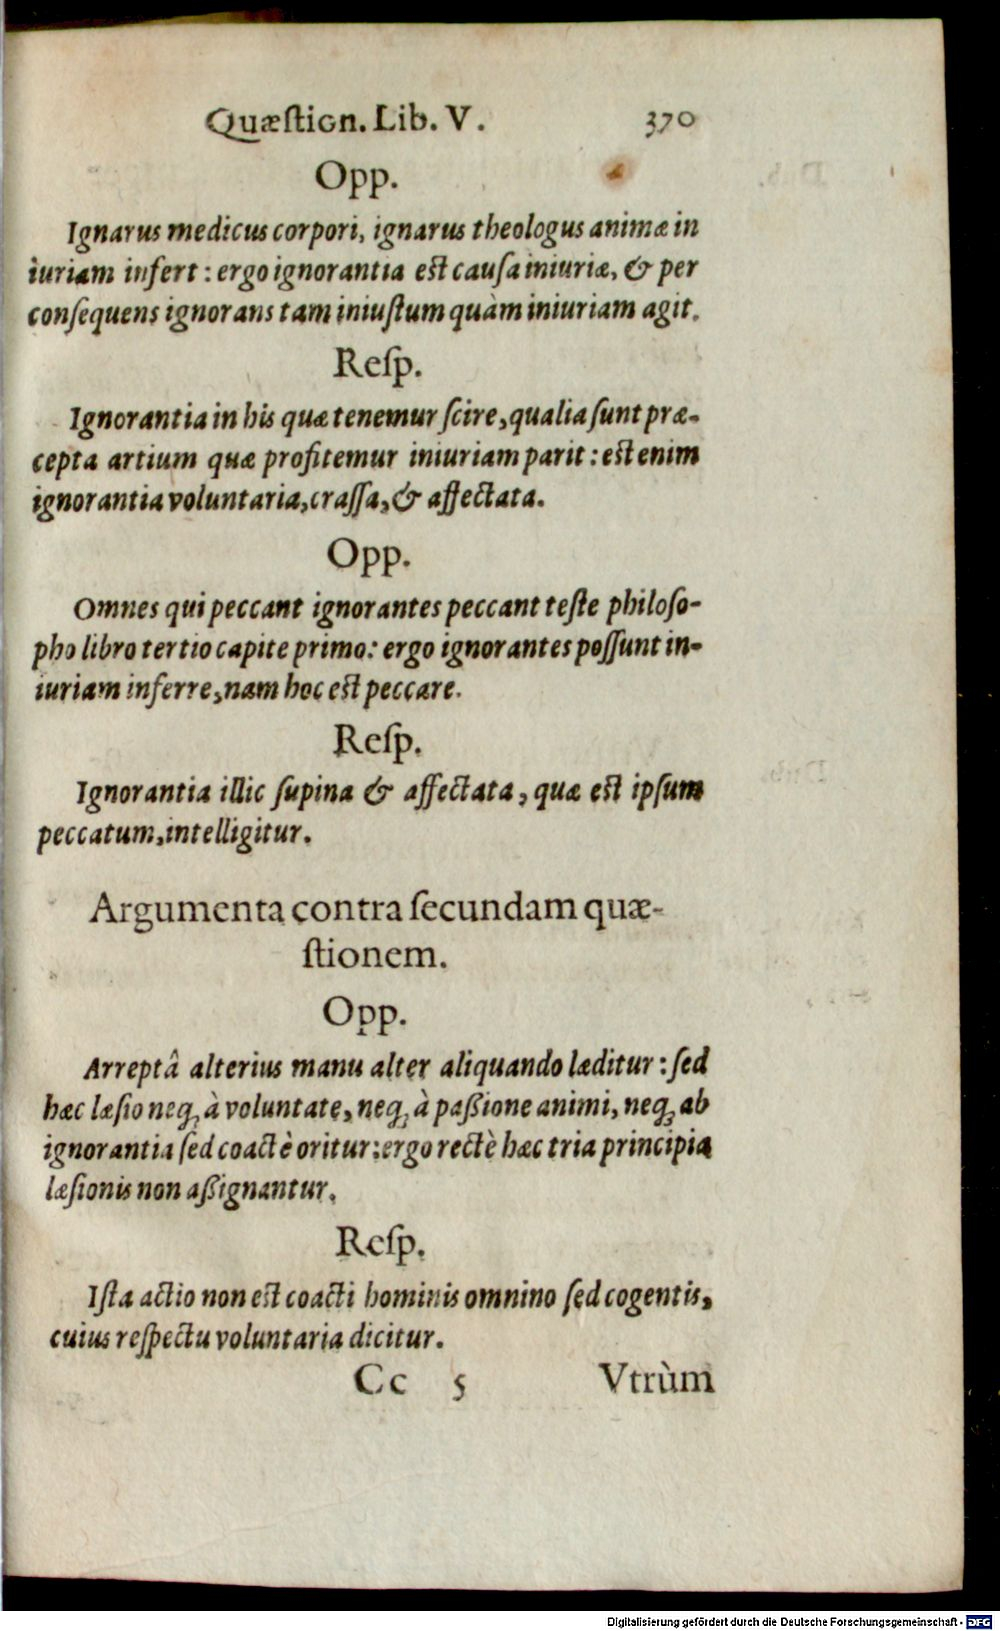 Quæſtion. Lib. V. 370
Opp.
Ignarus medicus corpori, ignarus theologus animæ in
iuriam infert : ergo ignorantia est cauſa iniuriæ, & per
conſequens ignorans tam iniuſtum quàm iniuriam agit.
Reſp.
Ignorantia in his quæ tenemur ſcire, qualia ſunt præ-
cepta artium quæ profitemur iniuriam parit : est enim
ignorantia voluntaria, craſſa, & affectata.
Opp.
Omnes qui peccant ignorantes peccant teſte philoſo-
pho libro tertio capite primo: ergo ignorantes poſſunt in-
iuriam inferre, nam hoc est peccare.
Reſp.
Ignorantia illic ſupina & affectata, quæ est ipſum
peccatum, intelligitur.
Argumenta contra ſecundam quæ-
ſtionem.
Opp.
Arreptâ alterius manu alter aliquando læditur : ſed
hæc læſio neq; à voluntate, neq; à paßione animi, neq; ab
ignorantia ſed coactè oritur: ergo rectè hæc tria principia
læſionis non aßignantur.
Reſp.
Iſta actio non est coacti hominis omnino ſed cogentis,
cuius reſpectu voluntaria dicitur.
Cc 5 Vtrùm
Digitalisierung gefördert durch die Deutsche Forschungsgemeinschaft - DFG